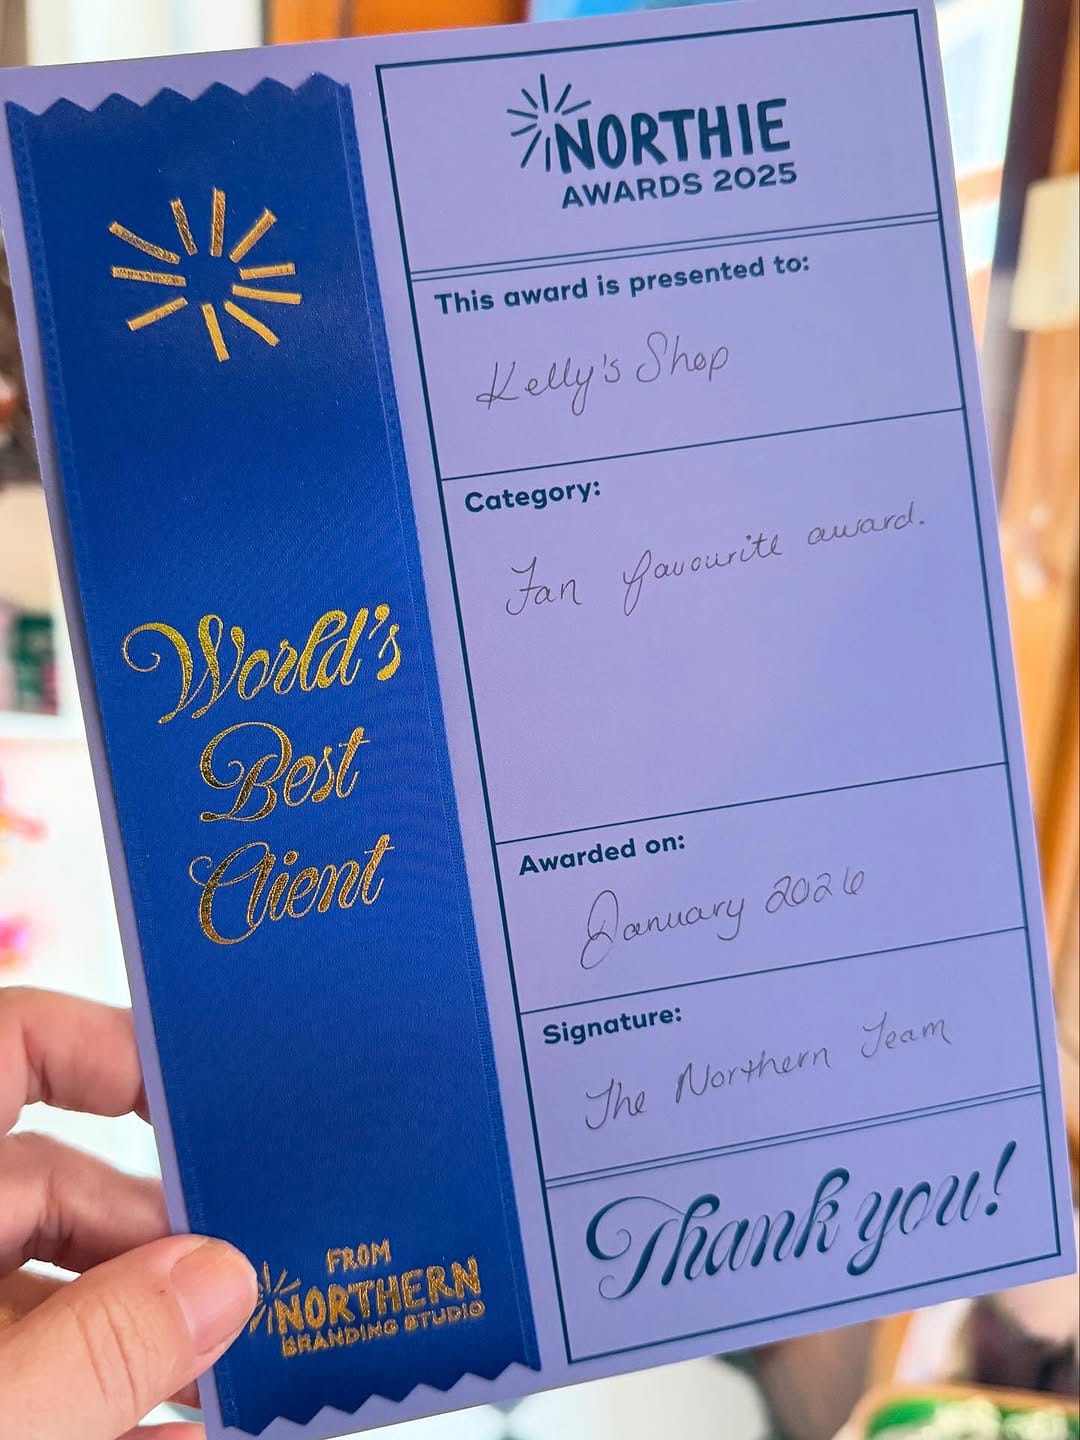 World's
Best
Client
FROM
NORTHERN
BRANDING STUDIO
NORTHIE
AWARDS 2025
This award is presented to:
Kelly's Shop
Category:
Fan favourite award.
Awarded on:
January 2026
Signature:
The Northern Team
Thank you!